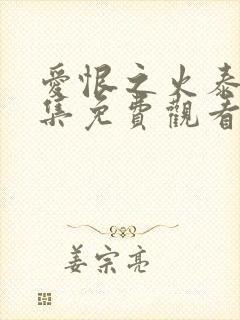 愛恨之火泰
集免費觀看
姜宗亮